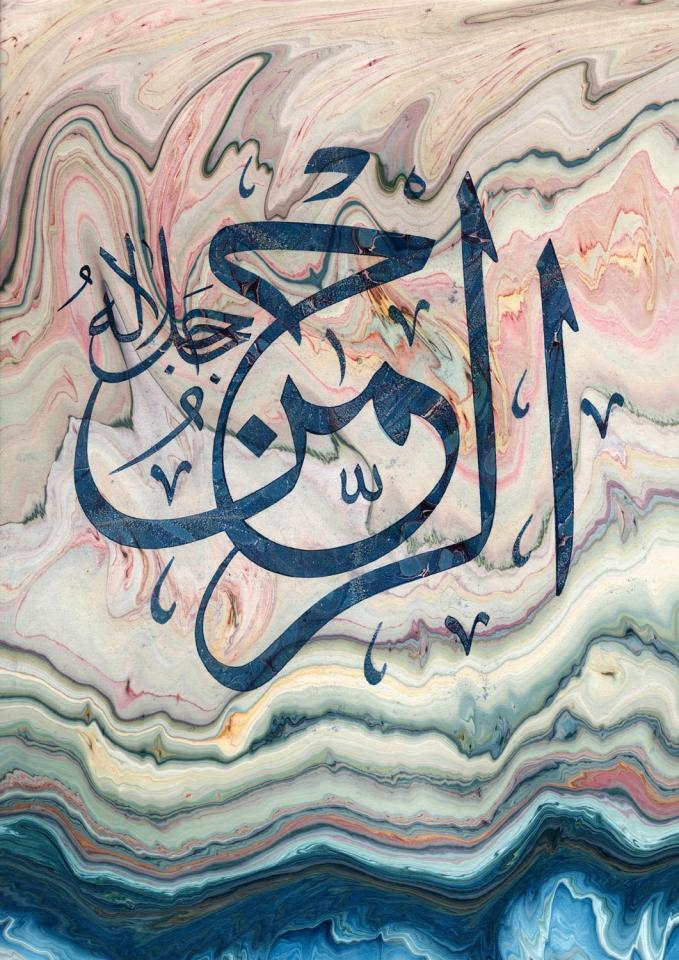 الرحمن
جل جلاله